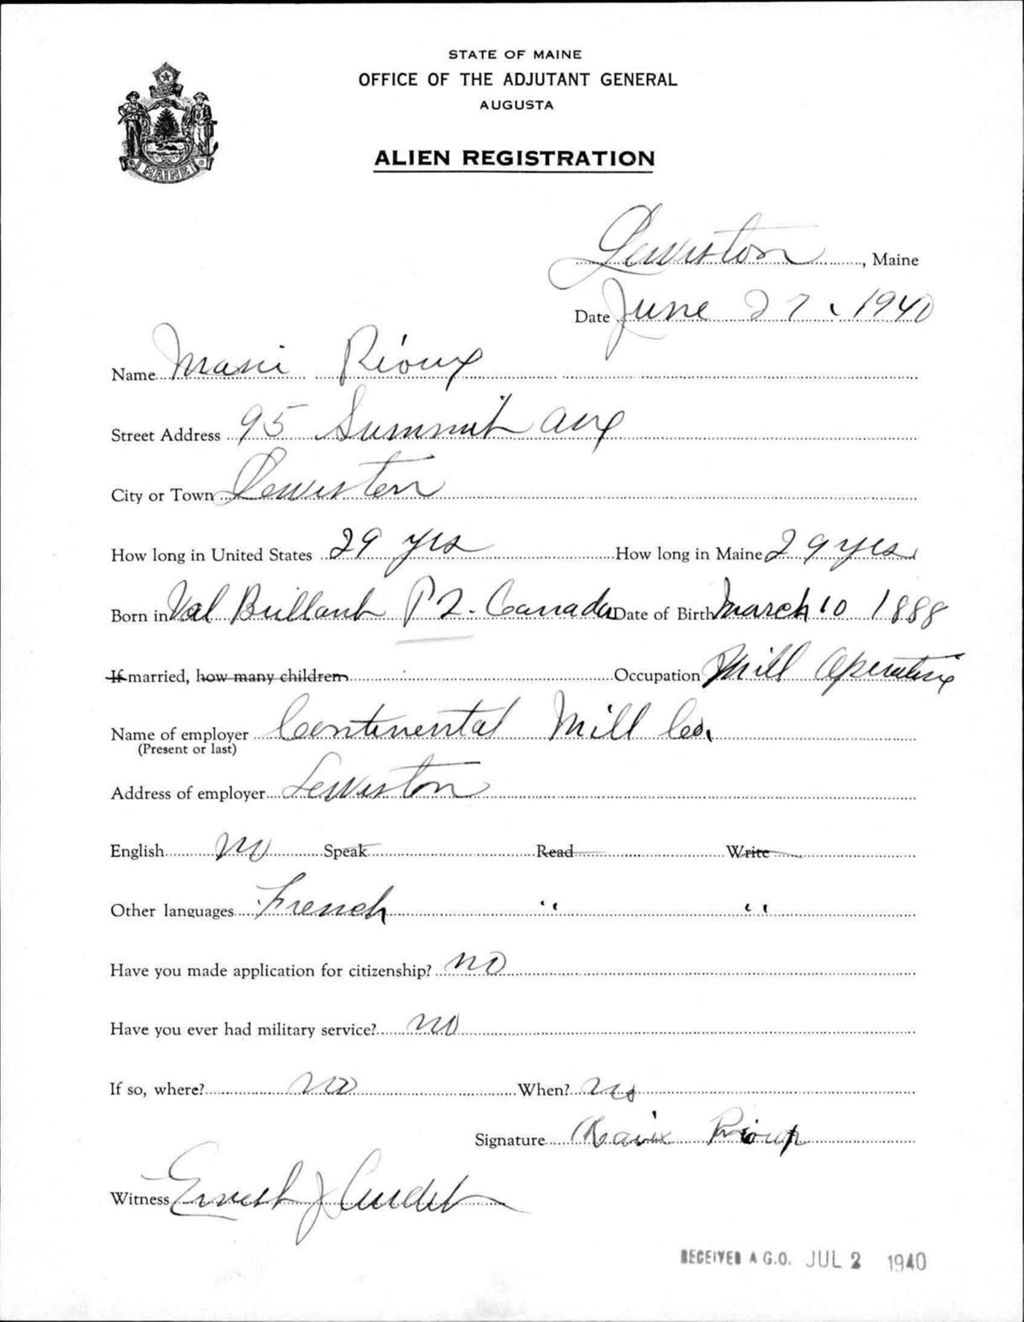 STATE OF MAINE
OFFICE OF THE ADJUTANT GENERAL
AUGUSTA
ALIEN REGISTRATION
MAINE
Lewiston, Maine
Date June 27, 1940
Name Marie Rioux
Street Address 95 Summit Ave
City or Town Lewiston
How long in United States 29 yrs How long in Maine 29 yrs
Born in Val Brillant P2. Canada Date of Birth March 10 1888
If married, how many children Occupation Mill Operative
Name of employer Continental Mill Co.
(Present or last)
Address of employer Lewiston
English no Speak Read Write
Other languages French " "
Have you made application for citizenship? no
Have you ever had military service? no
If so, where? no When? no
Signature Rioux
Witness Ernest J
RECEIVED A.G.O. JUL 2 1940